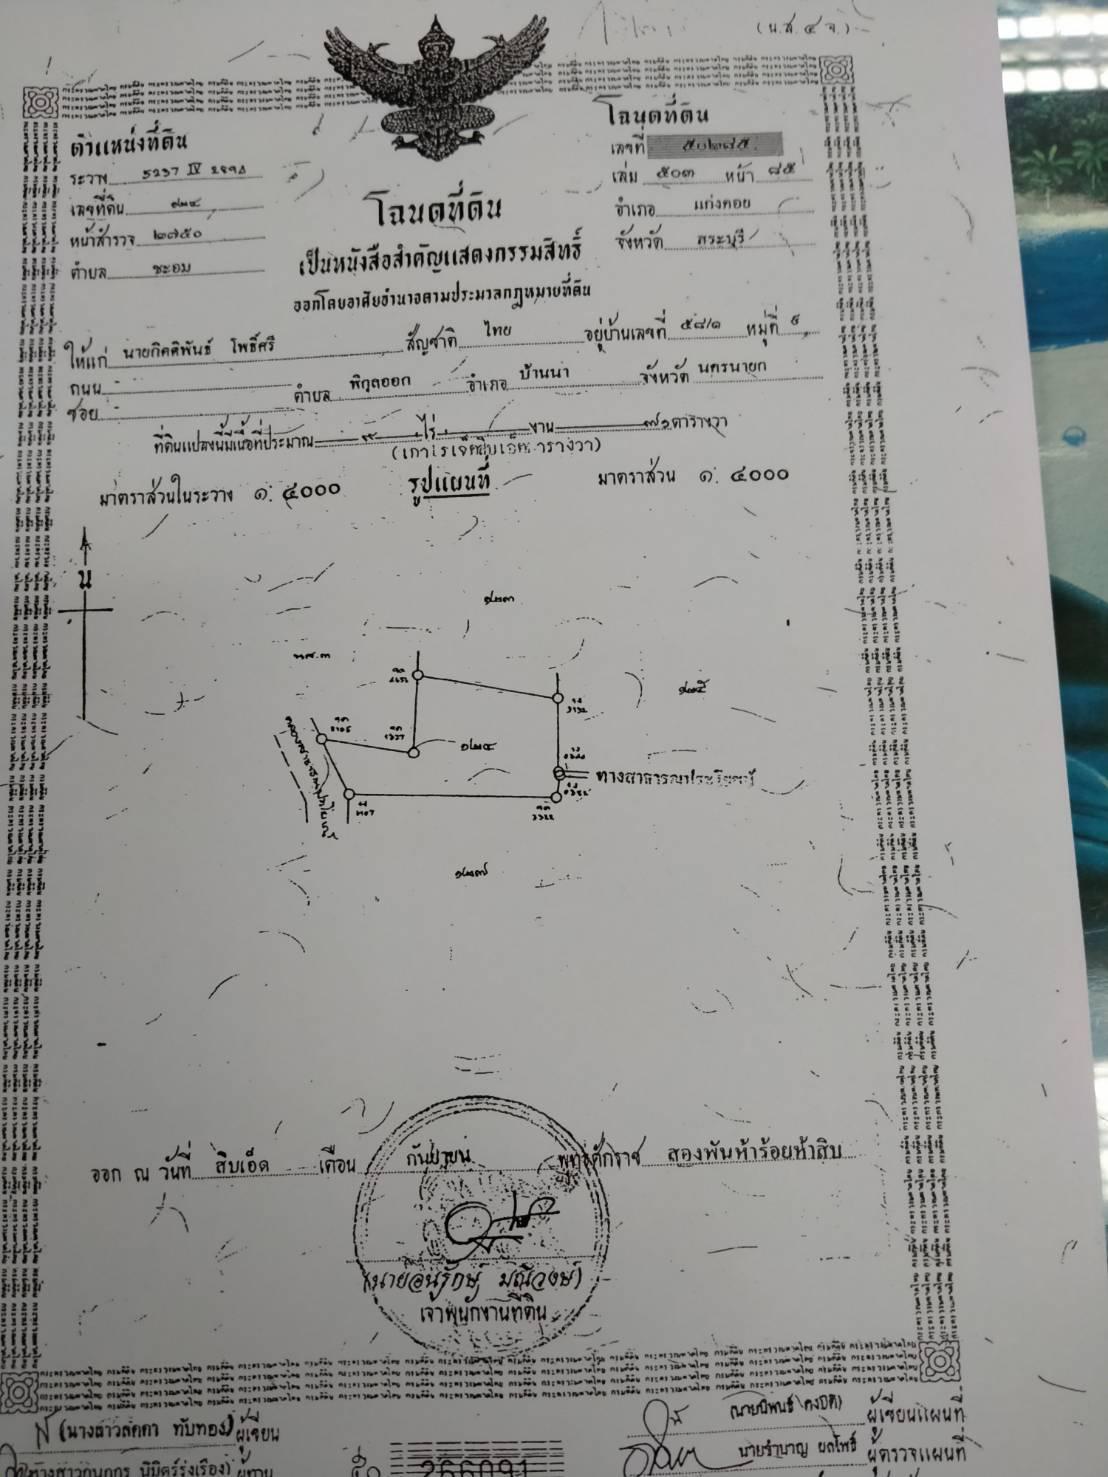 (น.ส. ๔ จ.)
ตำแหน่งที่ดิน
ระวาง 5237 IV
เลขที่ดิน ๑๒๔
หน้าสำรวจ ๒๗๕๐
ตำบล ชะอม
โฉนดที่ดิน
เลขที่ ๕๐๒๘๕
เล่ม ๕๐๓ หน้า ๘๕
อำเภอ แก่งคอย
จังหวัด สระบุรี
โฉนดที่ดิน
เป็นหนังสือสำคัญแสดงกรรมสิทธิ์
ออกโดยอาศัยอำนาจตามประมวลกฎหมายที่ดิน
ให้แก่ นายกิตติพันธ์ โพธิ์ศรี สัญชาติ ไทย อยู่บ้านเลขที่ ๕๘/๑ หมู่ที่
ถนน - ตำบล พิกุลออก อำเภอ บ้านนา จังหวัด นครนายก
ซอย -
ที่ดินแปลงนี้มีเนื้อที่ประมาณ ๙ ไร่ - งาน ๗๑ ตารางวา
(เก้าไร่เจ็ดสิบเอ็ดตารางวา)
มาตราส่วนในระวาง ๑: ๔๐๐๐ รูปแผนที่ มาตราส่วน ๑: ๔๐๐๐
น
๑๒๓
น.ส.๓
๑๒๕
๑๒๔
ทางสาธารณประโยชน์
๑๒๗
ออก ณ วันที่ สิบเอ็ด เดือน กันยายน พุทธศักราช สองพันห้าร้อยห้าสิบ
(นายอนุรักษ์ มณีวงษ์)
เจ้าพนักงานที่ดิน
(นางสาวลัดดา ทับทอง) ผู้เขียน
ผู้เขียนแผนที่
นายชำนาญ ผลโพธิ์ ผู้ตรวจแผนที่
266091